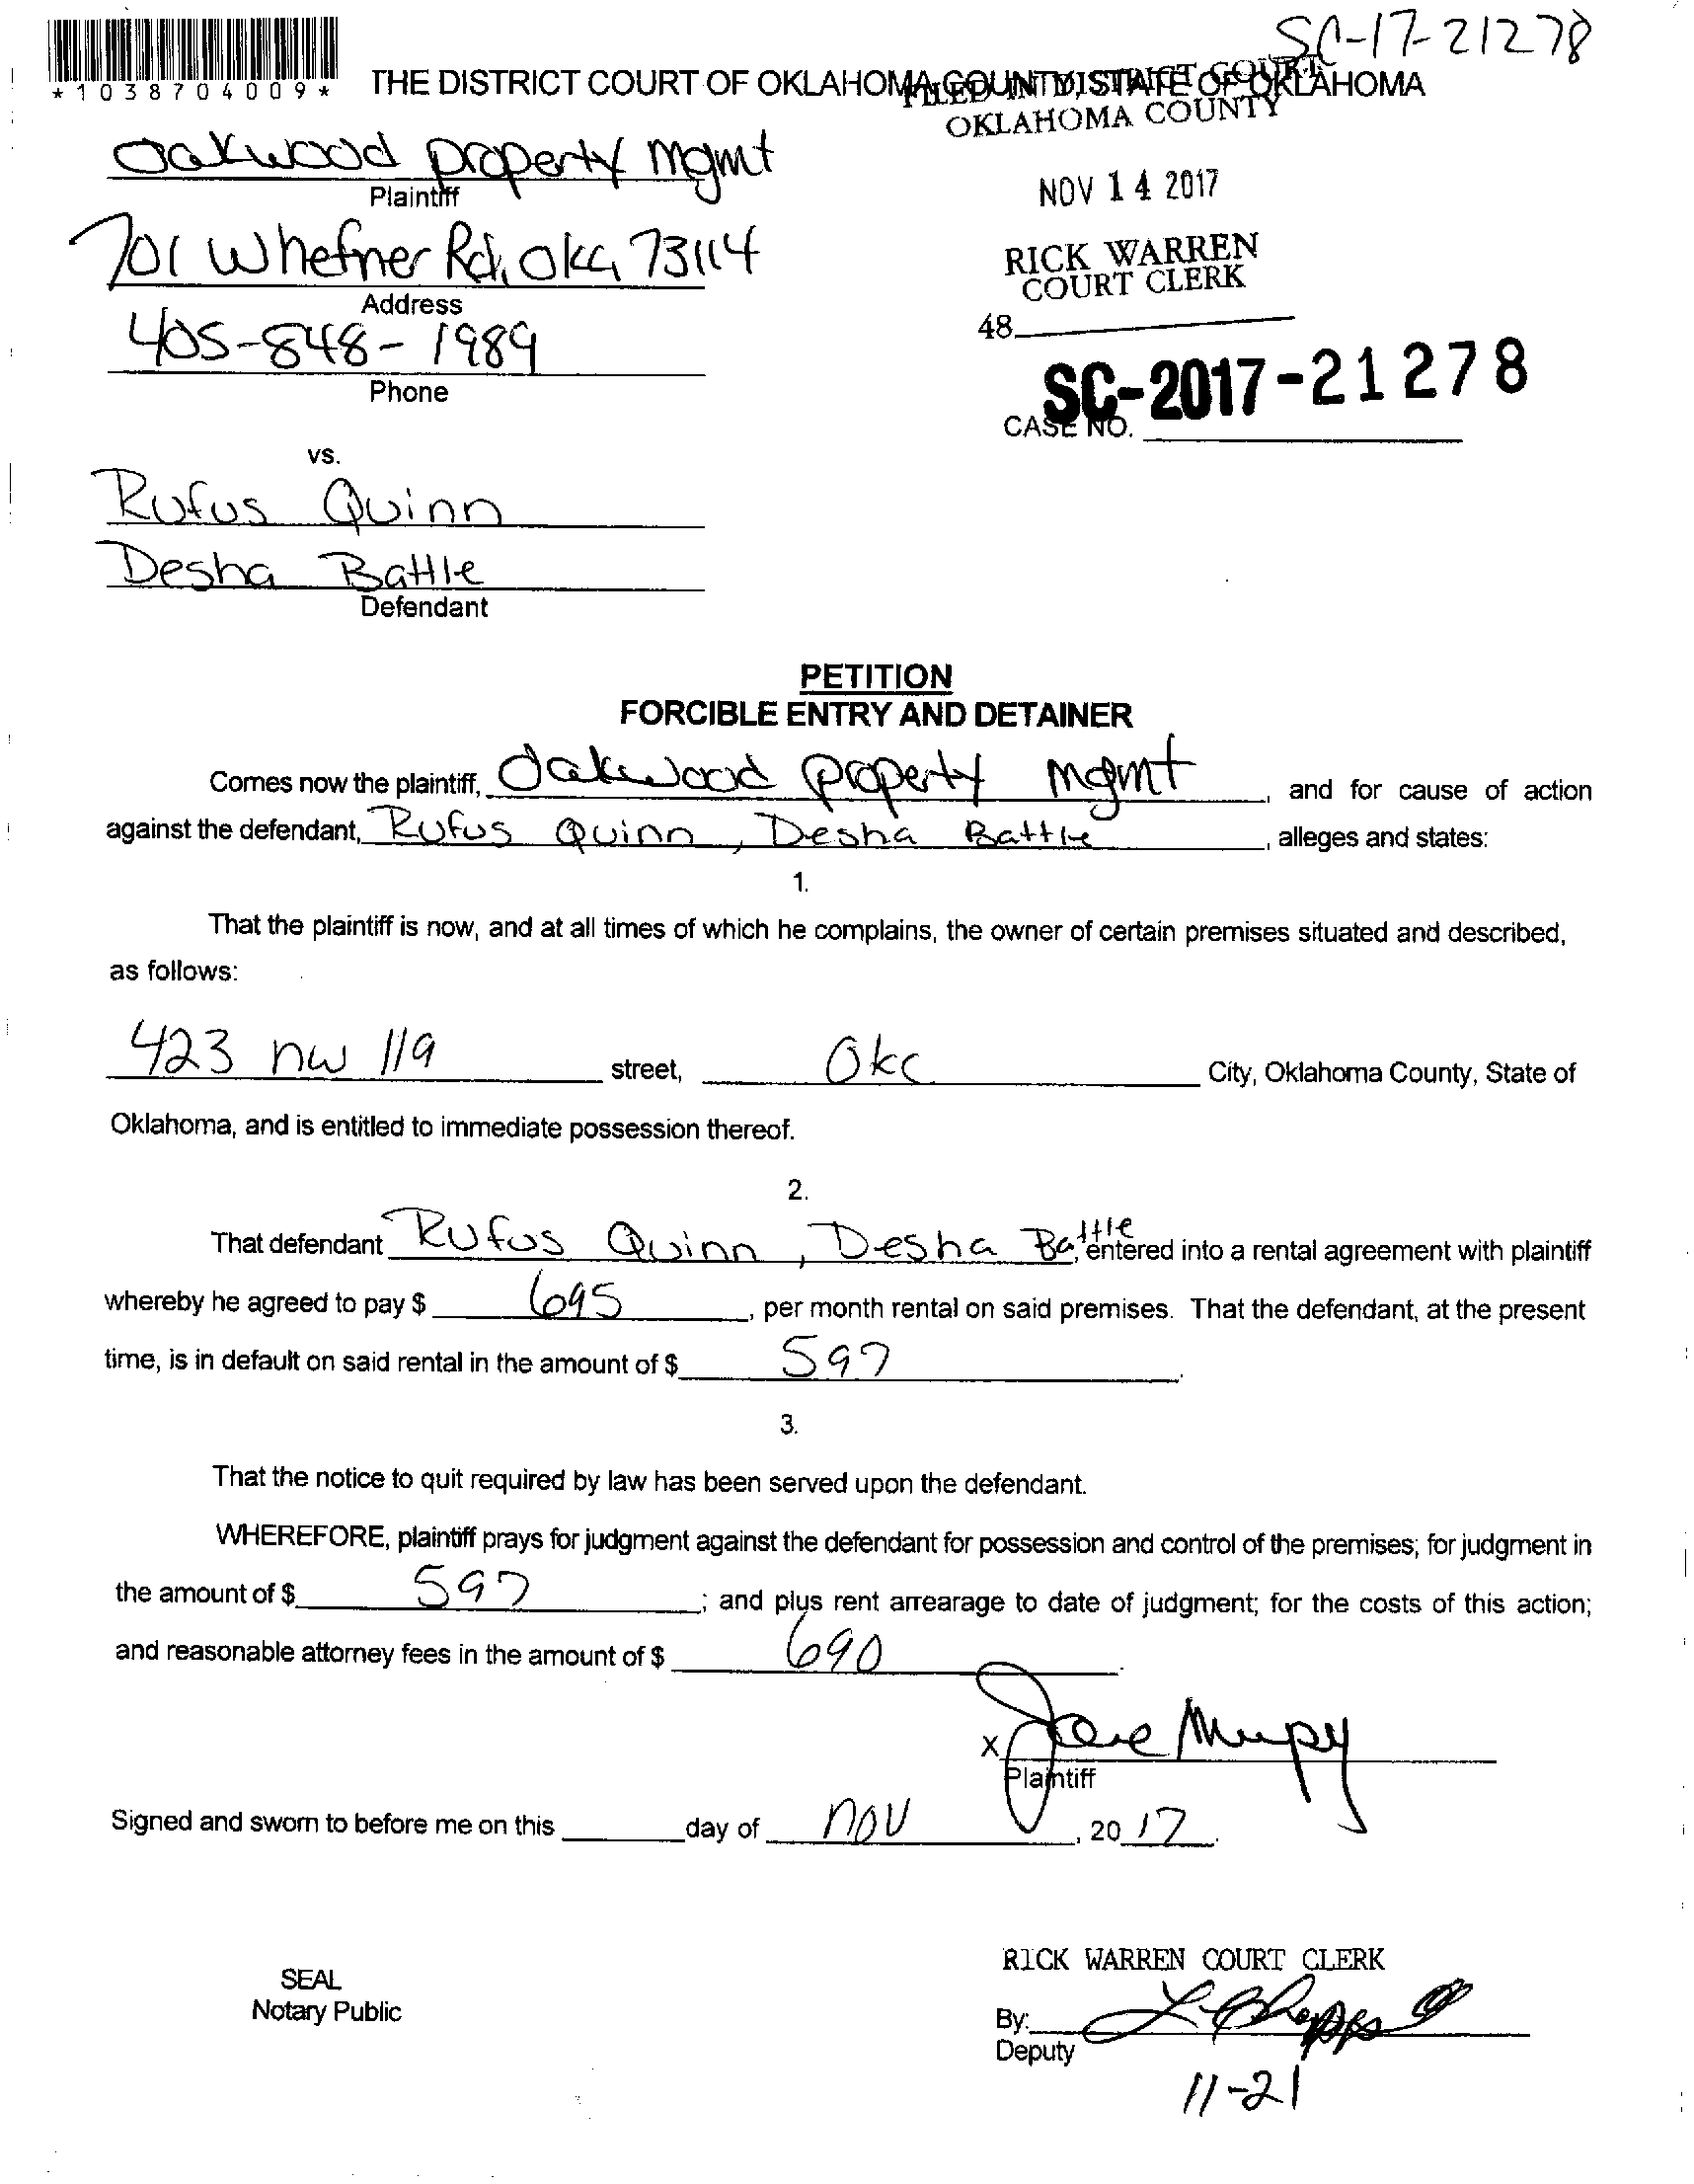 SC-17-21278
*1038704009*
THE DISTRICT COURT OF OKLAHOMA COUNTY, STATE OF OKLAHOMA
FILED IN DISTRICT COURT
OKLAHOMA COUNTY
Oakwood property mgmt
Plaintiff
NOV 14 2017
701 Whefner Rd, Okc, 73114
Address
RICK WARREN
COURT CLERK
405-848-1989
Phone
48
SC-2017-21278
CASE NO.
vs.
Rufus Quinn
Desha Battle
Defendant
PETITION
FORCIBLE ENTRY AND DETAINER
Comes now the plaintiff, Oakwood property mgmt, and for cause of action
against the defendant, Rufus Quinn, Desha Battle, alleges and states:
1.
That the plaintiff is now, and at all times of which he complains, the owner of certain premises situated and described,
as follows:
423 nw 119 street, Okc City, Oklahoma County, State of
Oklahoma, and is entitled to immediate possession thereof.
2.
That defendant Rufus Quinn, Desha Battle, entered into a rental agreement with plaintiff
whereby he agreed to pay $ 695, per month rental on said premises. That the defendant, at the present
time, is in default on said rental in the amount of $ 597.
3.
That the notice to quit required by law has been served upon the defendant.
WHEREFORE, plaintiff prays for judgment against the defendant for possession and control of the premises; for judgment in
the amount of $ 597; and plus rent arrearage to date of judgment; for the costs of this action;
and reasonable attorney fees in the amount of $ 690.
X
Plaintiff
Signed and sworn to before me on this day of nov, 2017.
RICK WARREN COURT CLERK
SEAL
Notary Public
By:
Deputy
11-21